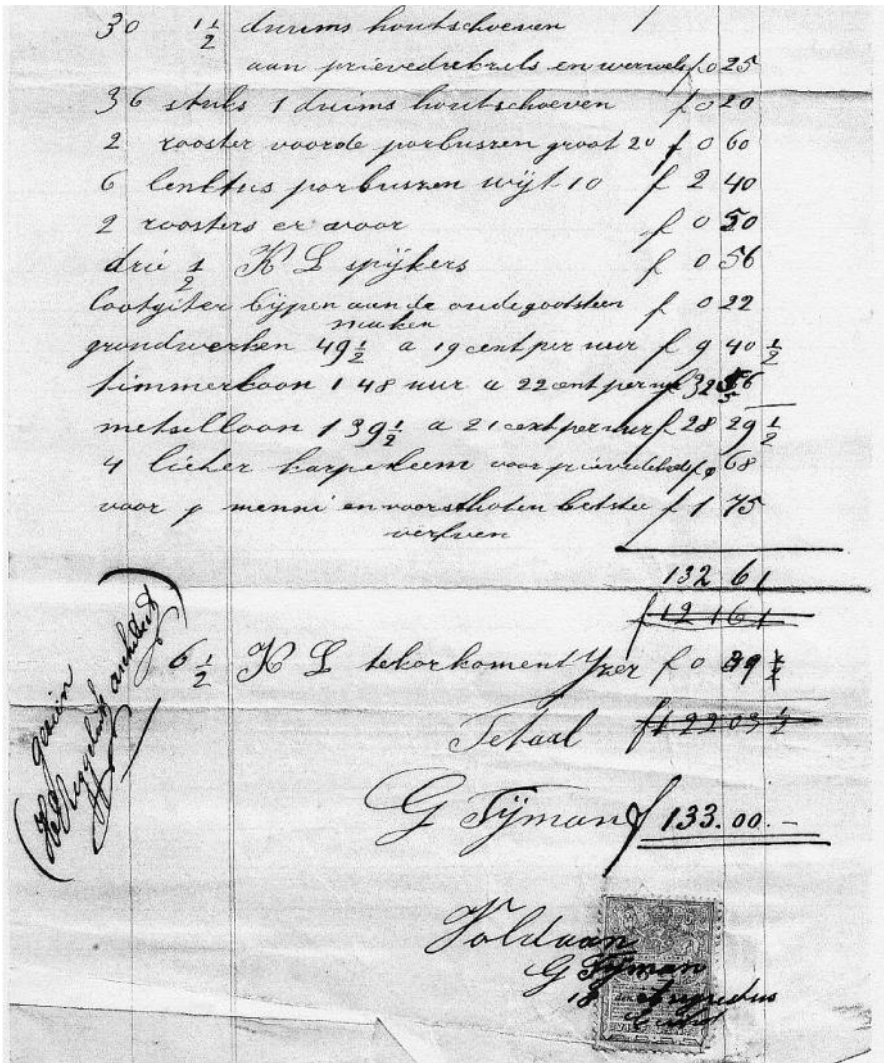 30 1 1/2 duims houtschoeven
aan prievedeksels en wervels f 0 25
36 stuks 1 duims houtschoeven f 0 20
2 rooster voorde porbussen groot 20 f 0 60
6 porbussen wijt 10 f 2 40
2 roosters er voor f 0 50
drie 1/2 K L spijkers f 0 56
lootgiter aan de oude gootsteen f 0 22
maken
grondwerken 49 1/2 a 19 cent per uur f 9 40 1/2
timmerloon 148 uur a 22 cent per uur f 32 56
metselloon 139 1/2 a 21 cent per uur f 28 29 1/2
4 karpeleem voor f 0 68
voor menni en betstee f 1 75
verfven
132 61
f 121 61
6 1/2 K L tekorkoment Yzer f 0 39 1/2
Totaal f 122 03 1/2
G Tijman f 133.00.-
gezien
architect
Voldaan
G Tijman
18 Augustus